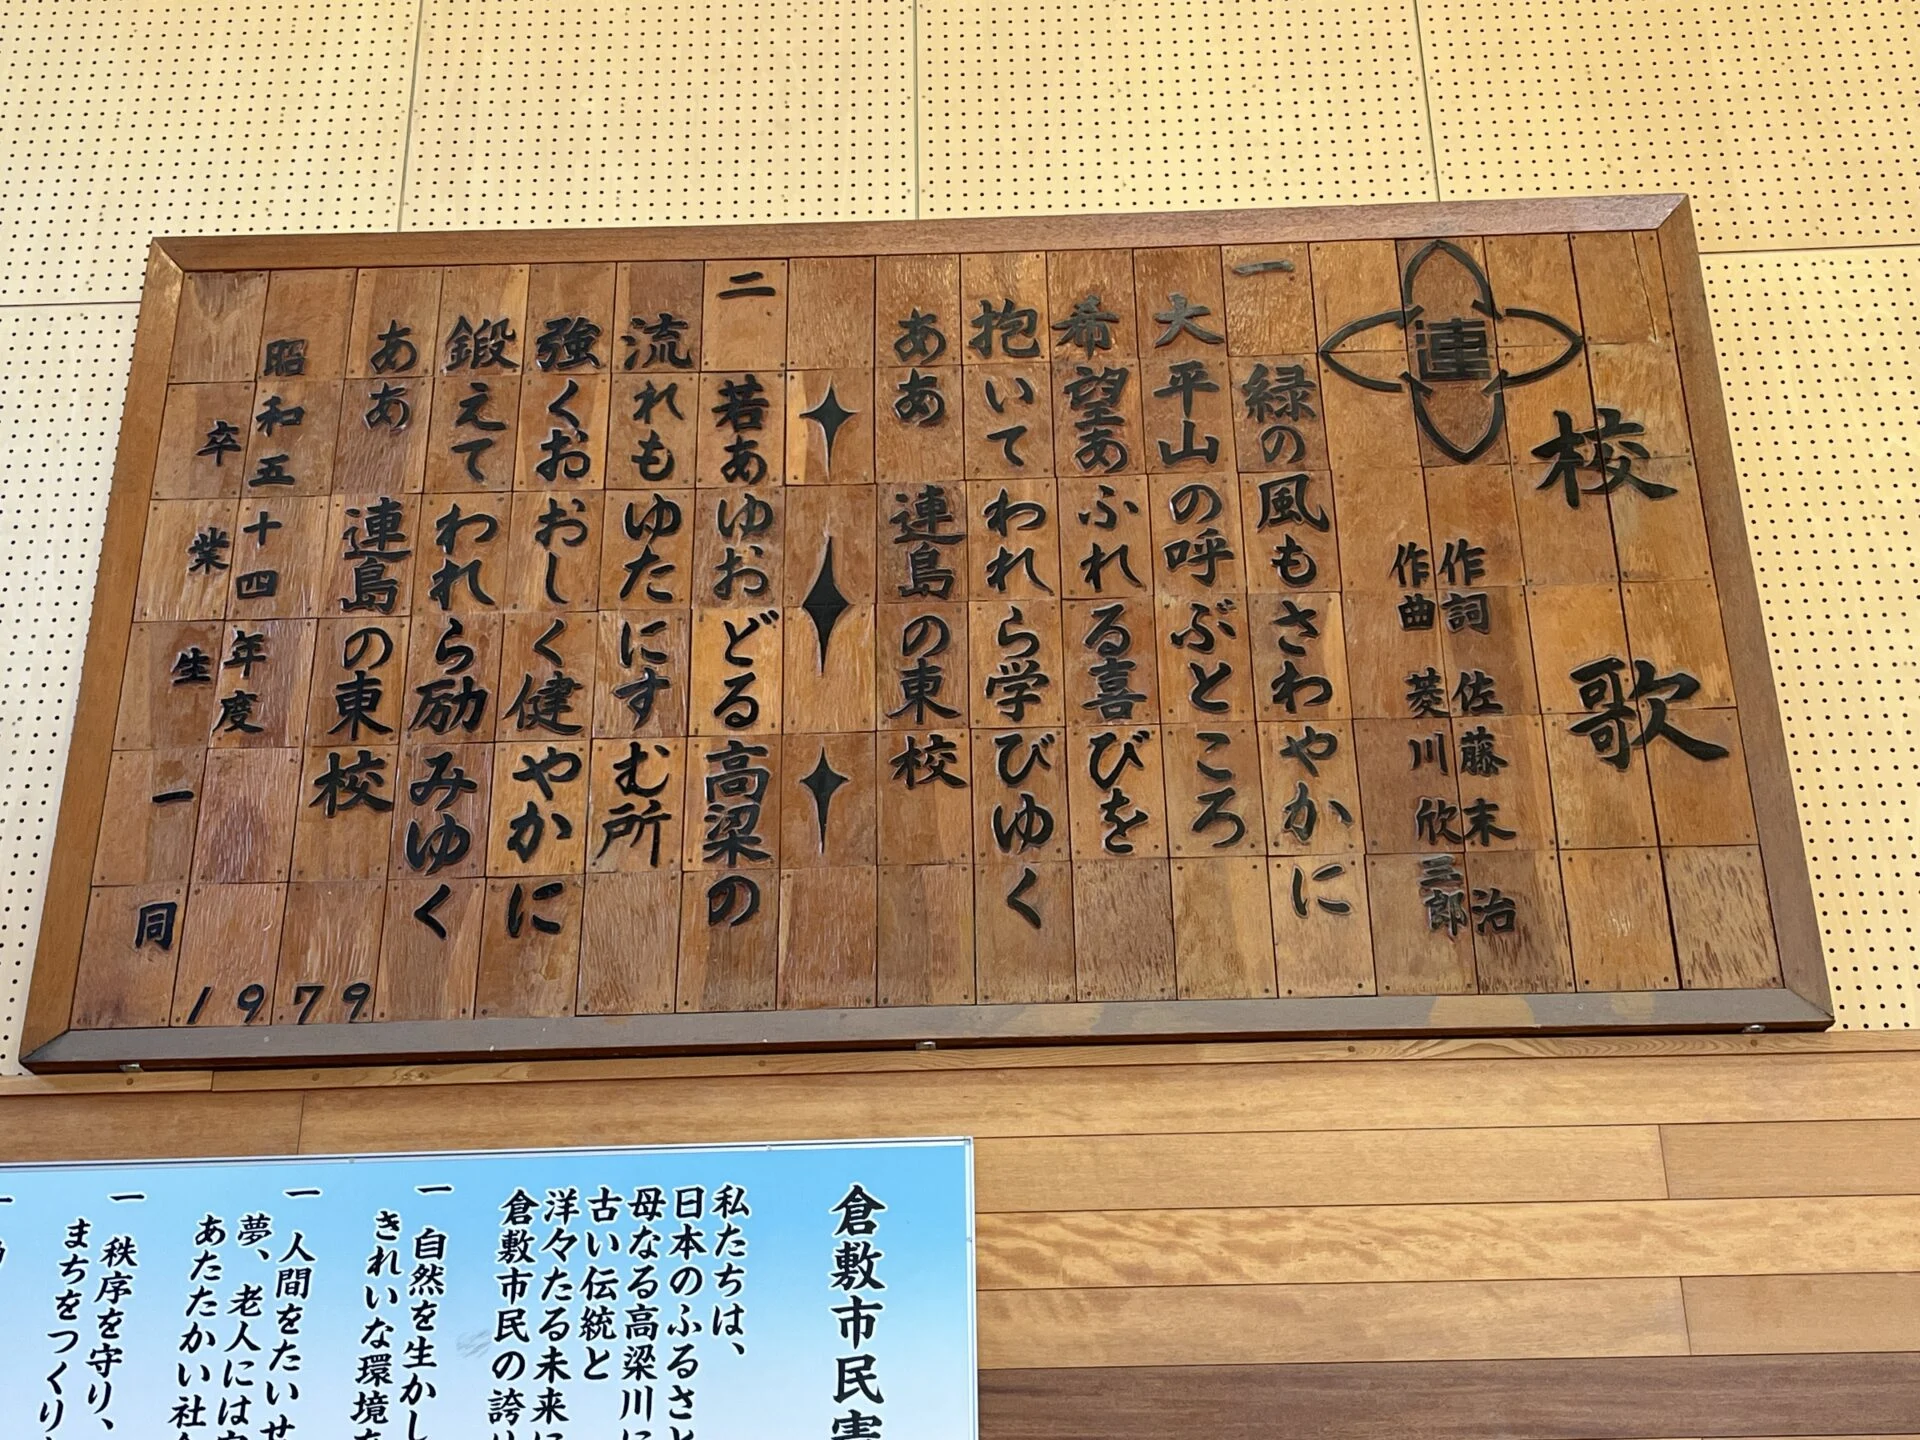 校歌
連
作詞 佐藤末治
作曲 菱川欣三郎
一
緑の風もさわやかに
大平山の呼ぶところ
希望あふれる喜びを
抱いてわれら学びゆく
ああ 連島の東校
二
若あゆおどる高梁の
流れもゆたにすむ所
強くおおしく健やかに
鍛えてわれら励みゆく
ああ 連島の東校
昭和五十四年度
卒業生一同
1979
倉敷市民
私たちは、
日本のふるさと
母なる高梁川に
古い伝統と
洋々たる未来に
倉敷市民の誇り
一 自然を生かし
きれいな環境を
一 人間をたいせ
夢、老人には
あたたかい社会
一 秩序を守り、
まちをつくり
一